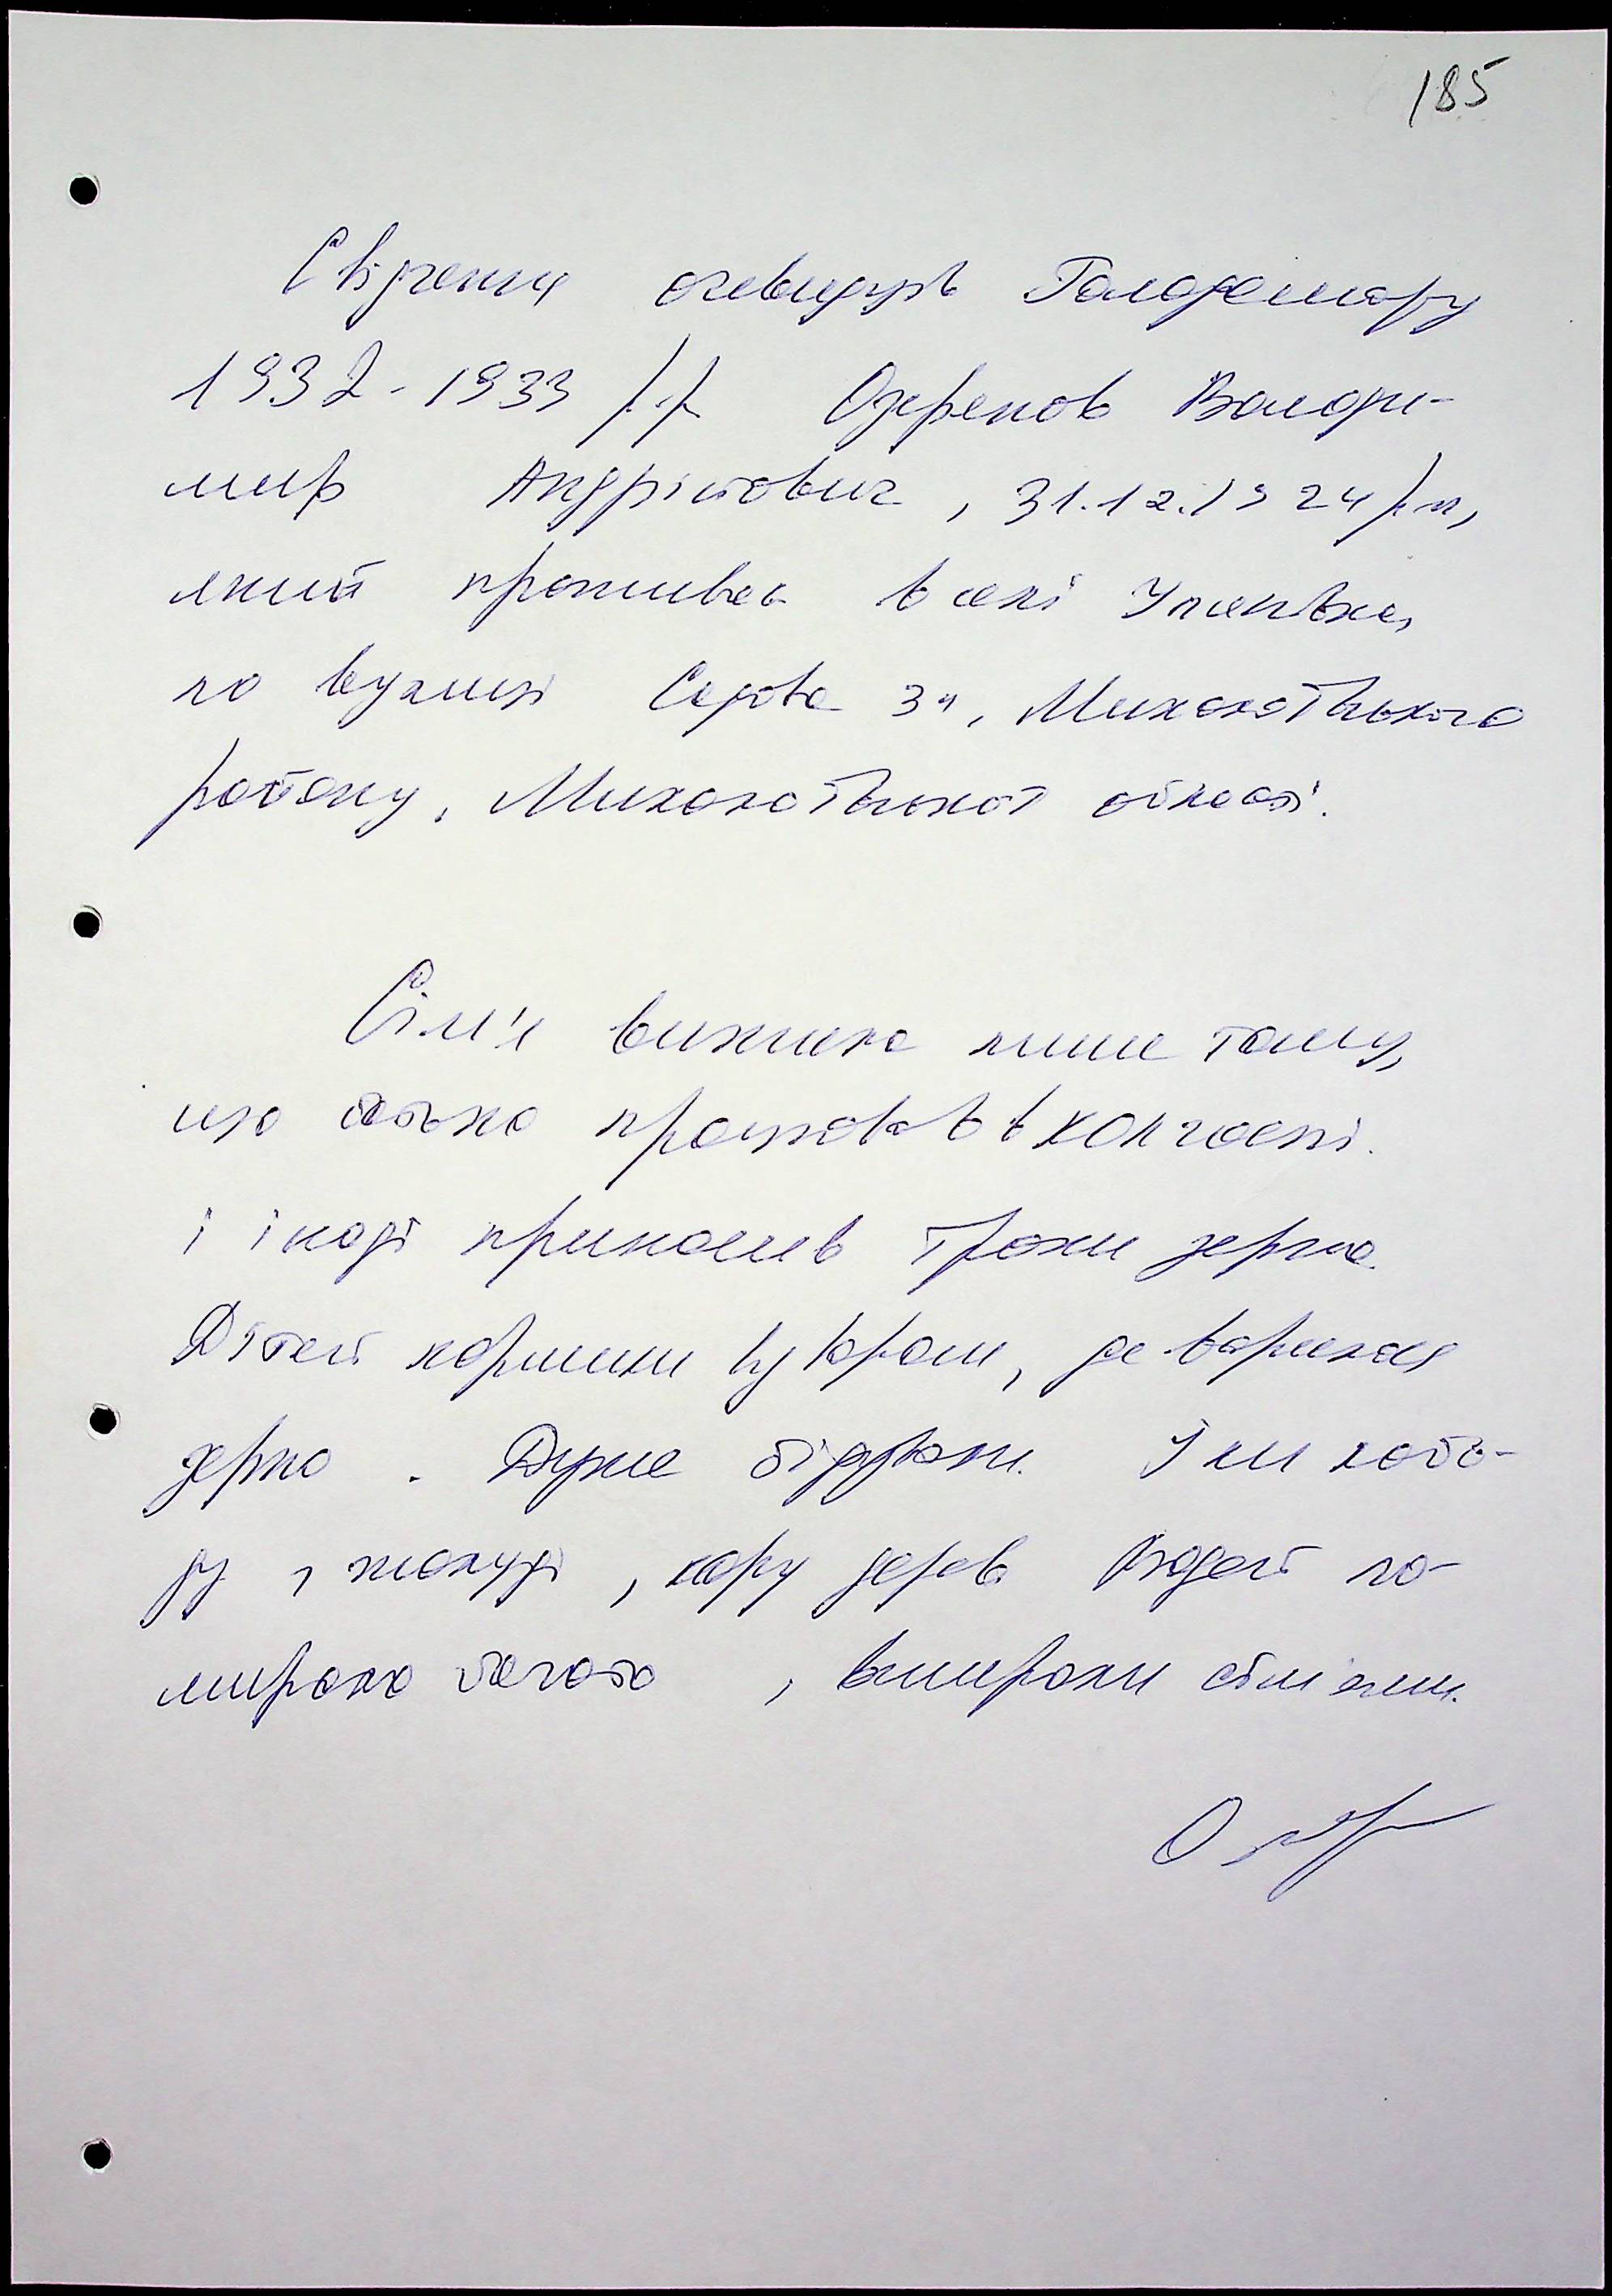 185
Свідчення очевидців Голодомору
1932-1933 р.р. Озеренов Володи-
мир Андрійович, 31.12.1924 р.н,
який проживає в селі Улянівка,
по вулиці Сєрова 3а, Миколаївського
району, Миколаївської області.
Сім'я вижила лише тому,
що батько працював в колгоспі.
і іноді приносив трохи зерна.
Дітей кормили відваром, де варилося
зерно. Дуже бідували. Їли лобо-
ду, жолуді, кору дерев. Людей по-
мирало багато, вимирали сім'ями.